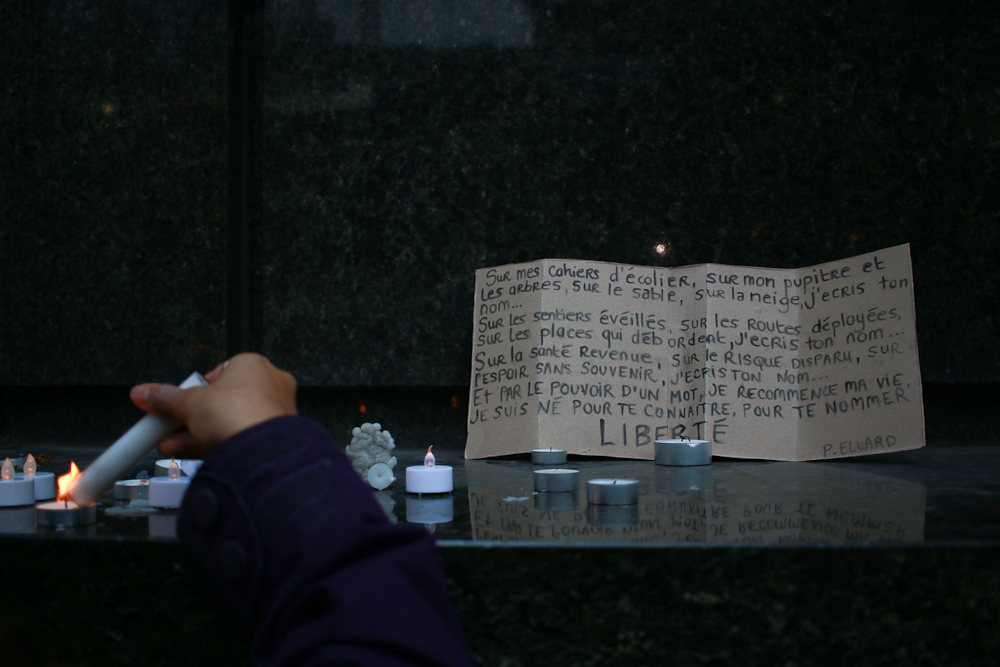 Sur mes cahiers d'écolier, sur mon pupitre et
les arbres, sur le sable, sur la neige, j'ecris ton
nom...
Sur les sentiers éveillés, sur les routes déployées,
sur les places qui débordent, j'ecris ton nom...
Sur la santé Revenue, sur le RISQUE DISPARU, SUR
l'ESPOIR SANS SOUVENIR, J'ECRIS TON NOM...
ET PAR LE POUVOIR D'UN MOT, JE RECOMMENCE MA VIE,
JE SUIS NÉ POUR TE CONNAITRE, POUR TE NOMMER
LIBERTÉ
P. ELUARD